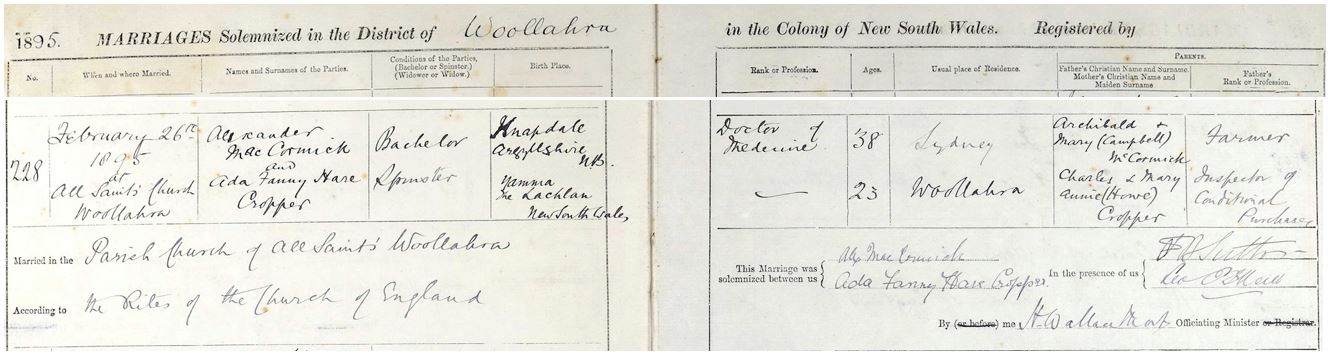 1895. MARRIAGES Solemnized in the District of Woollahra in the Colony of New South Wales. Registered by
No.
When and where Married.
Names and Surnames of the Parties.
Conditions of the Parties,
(Bachelor or Spinster.)
(Widower or Widow.)
Birth Place.
Rank or Profession.
Ages.
Usual place of Residence.
PARENTS.
Father's Christian Name and Surname.
Mother's Christian Name and
Maiden Surname
Father's
Rank or Profession.
228
February 26th
1895
at
All Saints Church
Woollahra
Alexander
MacCormick
and
Ada Fanny Hare
Cropper
Bachelor
Spinster
Knapdale
Argyllshire
N.B.
Yamma
The Lachlan
New South Wales
Doctor of
Medecine
38
23
Sydney
Woollahra
Archibald &
Mary (Campbell)
McCormick
Charles & Mary
Annie (Howe)
Cropper
Farmer
Inspector of
Conditional
Purchases
Married in the Parish Church of All Saints' Woollahra
According to the Rites of the Church of England
This Marriage was
solemnized between us
Alex MacCormick
Ada Fanny Hare Cropper.
In the presence of us
By (or before) me H. Wallace Mort Officiating Minister or Registrar.